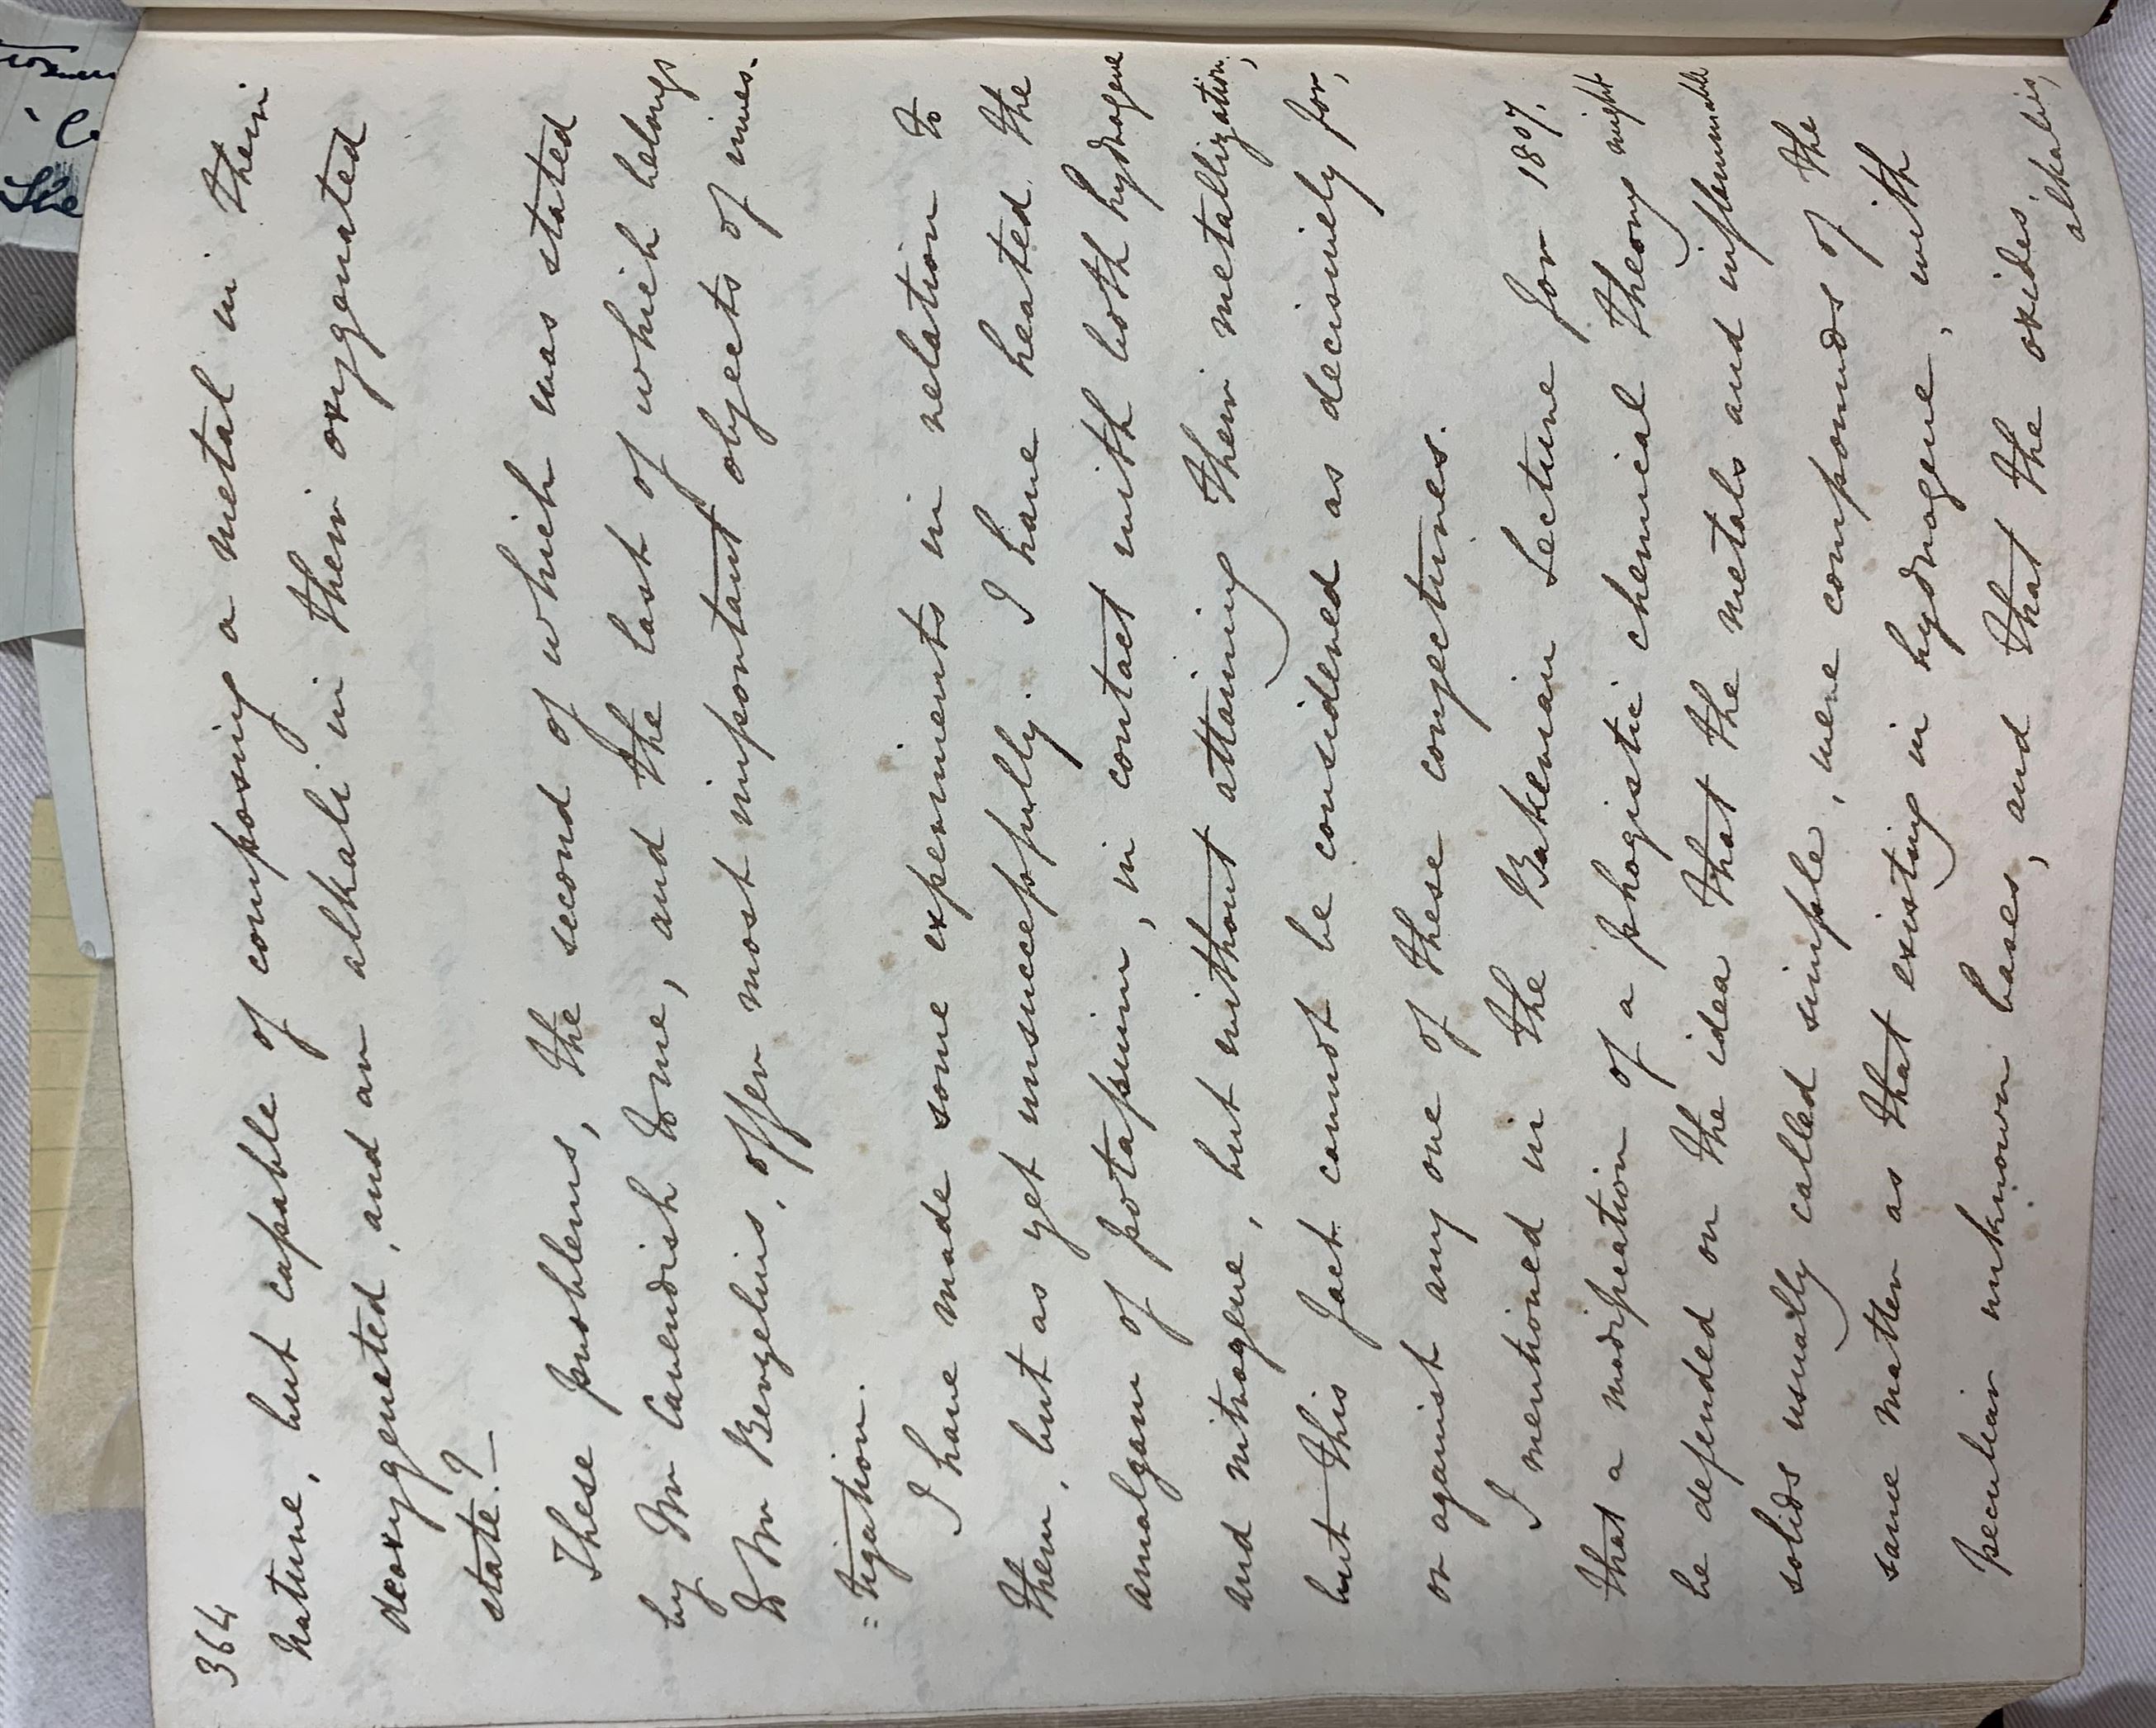 364
nature, but capable of composing a metal in their
deoxygenated, and an alkali in their oxygenated
state?
These problems, the second of which was stated
by Mr Cavendish to me, and the last of which belongs
to Mr Berzelius, offer most important objects of inves-
=tigation.
I have made some experiments in relation to
them, but as yet unsuccessfully. I have heated the
amalgam of potassium, in contact with both hydrogene
and nitrogene, but without attaining their metallization,
but this fact cannot be considered as decisively for,
or against any one of these conjectures.
I mentioned in the Bakerian Lecture for 1807,
that a modification of a phogistic chemical theory might
be depended on the idea that the metals and inflammable
solids usually called simple, were compounds of the
same matter as that existing in hydrogene, with
peculiar unknown bases, and that the oxides,
alkalis,
The